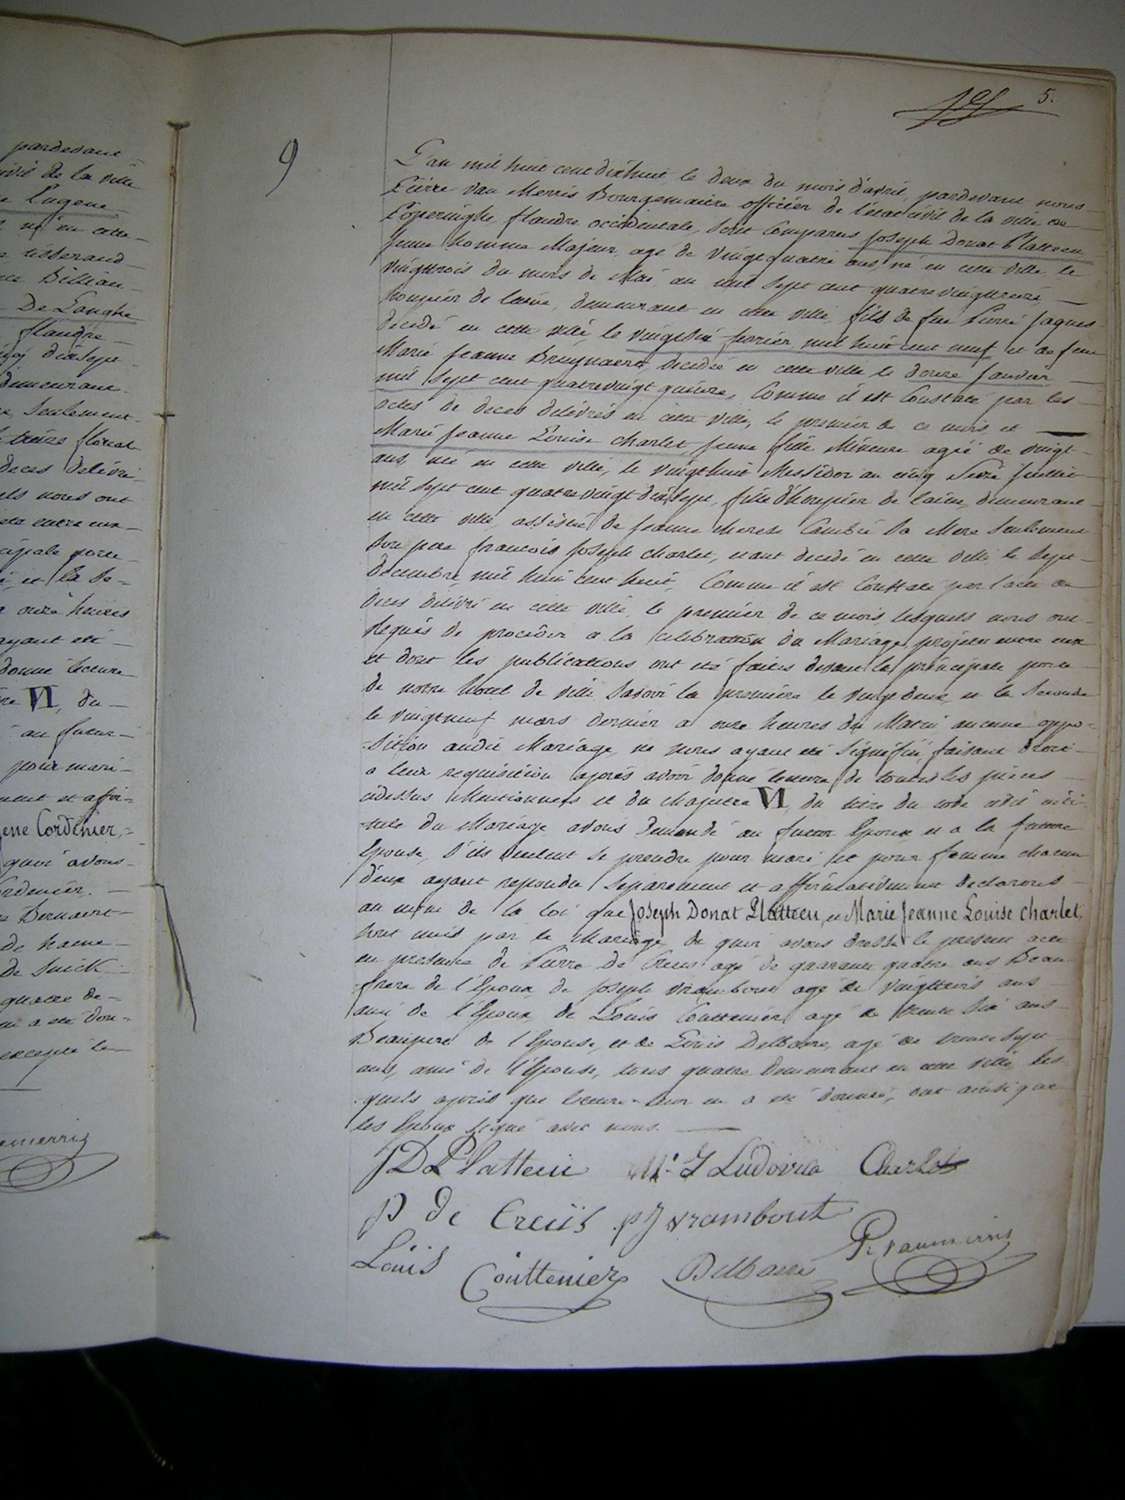 pardevant
civil de la ville
Eugene
né en cette
tisserand
Billiau
De Langhe
flandre
dixsept
demeurant
seulement
treize floreal
deces delivré
nous ont
entre eux
cipale porte
et la Se-
onze heures
ayant eté
donné lecture
VI, du
au futur
pour mari
ment et affir-
gene Cordenier,
quoi avons
Cordenier.
Bernaert
de hame
de Snick
quatre de-
a eté don-
excepté le
5.
9
L'an mil huit cent dixhuit, le deux du mois d'avril, pardevant nous
Pierre van Merris Bourgemaitre officier de l'état civil de la ville de
Poperinghe, flandre occidentale, sont comparus Joseph Donat Platteeu
jeune homme Majeur, agé de vingtquatre ans, né en cette ville le
vingttrois du mois de Mai an mil sept cent quatrevingttreize
houpier de laine, demeurant en cette ville, fils de feu Pierre Jaques
decedé en cette ville le vingtsix fevrier mil huit cent neuf et de feue
Marie Jeanne Bruynaert decedée en cette ville le douze Janvier
mil sept cent quatrevingt quinze, Comme il est Constaté par les
actes de deces delivrés en cette ville, le premier de ce mois et
Marie Jeanne Louise charlet, jeune fille Mineure agée de vingt
ans, née en cette ville, le vingthuit Messidor an cinq Seize juillet
mil sept cent quatrevingt dixsept, fille d'houpier de laine, demeurant
en cette ville, assistée de jeanne therese Cambié Sa Mere Seulement
son pere francois Joseph charlet, etant decedé en cette ville le Sept
Decembre, mil huit cent huit, Comme il est Constaté par l'acte de
deces delivré en cette ville, le premier de ce mois lesquels nous ont
requis de proceder a la celebration du Mariage projeté entre eux
et dont les publications ont eté faites devant la principale porte
de notre hotel de ville savoir la premiere le vingtdeux, et la Seconde
le vingtneuf mars dernier a onze heures du Matin aucune oppo-
sition audit Mariage ne nous ayant eté signifiée, faisant droit
a leur requisition apres avoir donné lecture de toutes les pieces
cidessus Mentionnées et du chapitre VI, du titre du code civil inti-
tulé du Mariage avons demandé au futur Epoux et a la future
Epouse, S'ils veulent se prendre pour mari et pour femme chacun
d'eux ayant repondu separement et affirmativement declarons
au nom de la loi que Joseph Donat Platteeu, et Marie Jeanne Louise charlet,
sont unis par le Mariage de quoi avons dressé le present acte
en presence de Pierre De Creus agé de quarante quatre ans Beau
frere de l'Epoux de Joseph vrambout agé de vingttrois ans
ami de l'Epoux, de Louis Couttenier, agé de trente six ans
Beaupere de l'Epouse, et de Louis Delbaere, agé de trente sept
ans, ami de l'Epouse, tous quatre demeurant en cette ville, les-
quels apres que lecture leur en a eté donnée, ont ainsi que
les Epoux signé avec nous.
JD Platteeu M. J Ludovica Charlet
p de Creüs pJ vrambout
Louis Couttenier Delbaere P. vanmerris